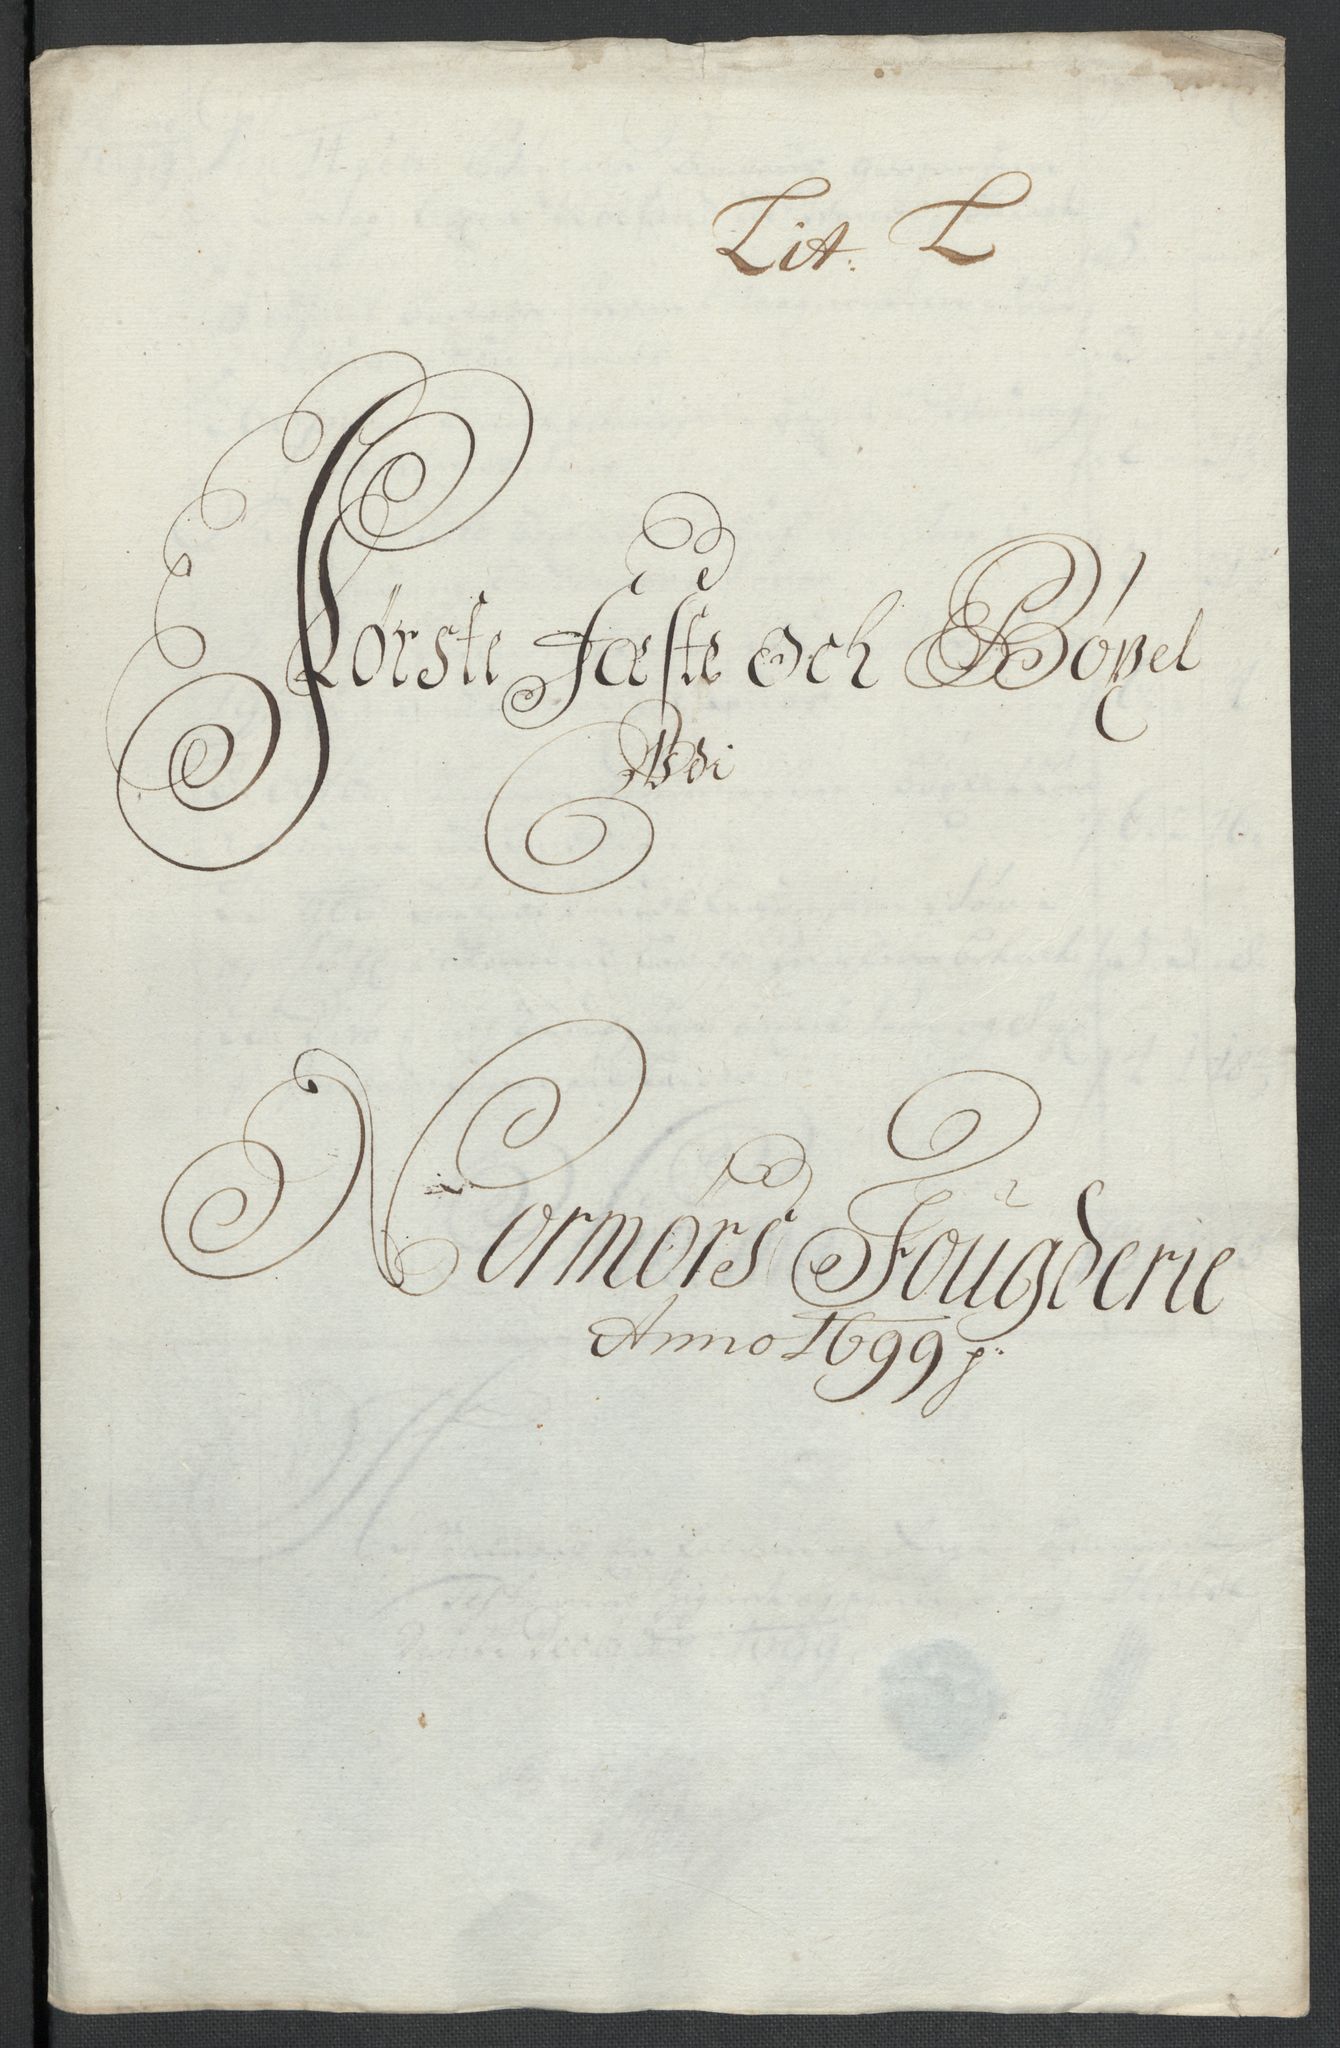 Lit. L
Første fæste och Bøxel
Udi
Normørs Fougderie
Anno 1699